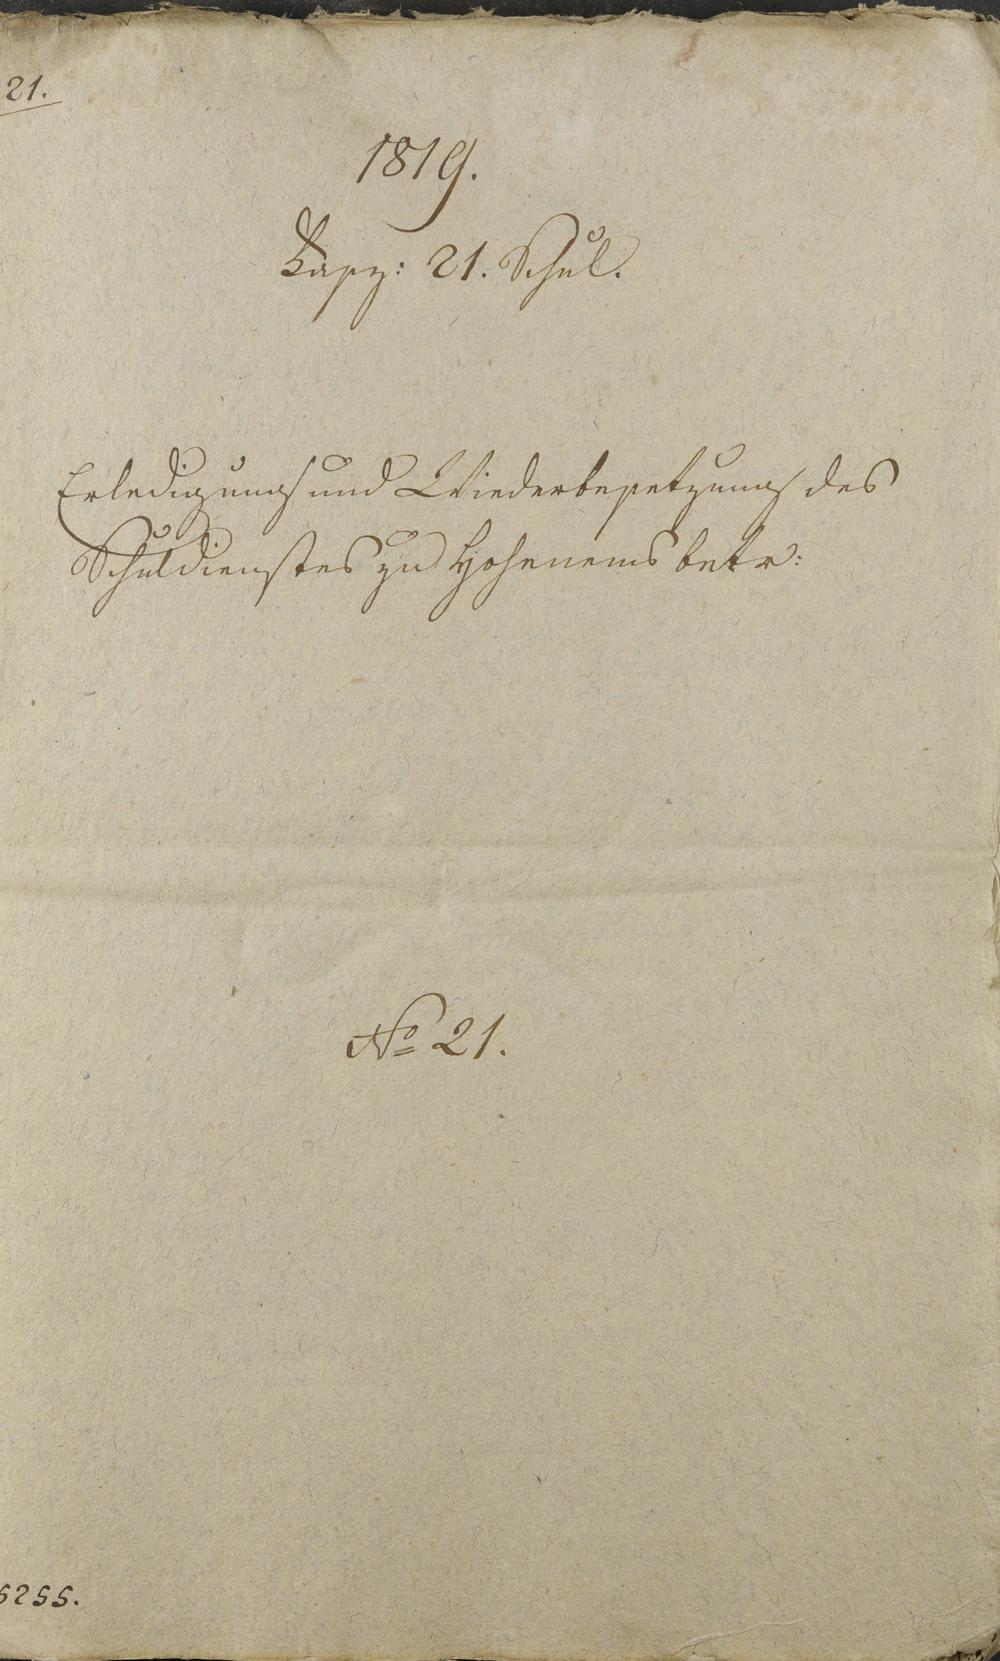 21.
1819.
21. Schul.
Erledigung und Wiederbesetzung des
Schuldienstes zu Hohenems betr:
No 21.
5255.